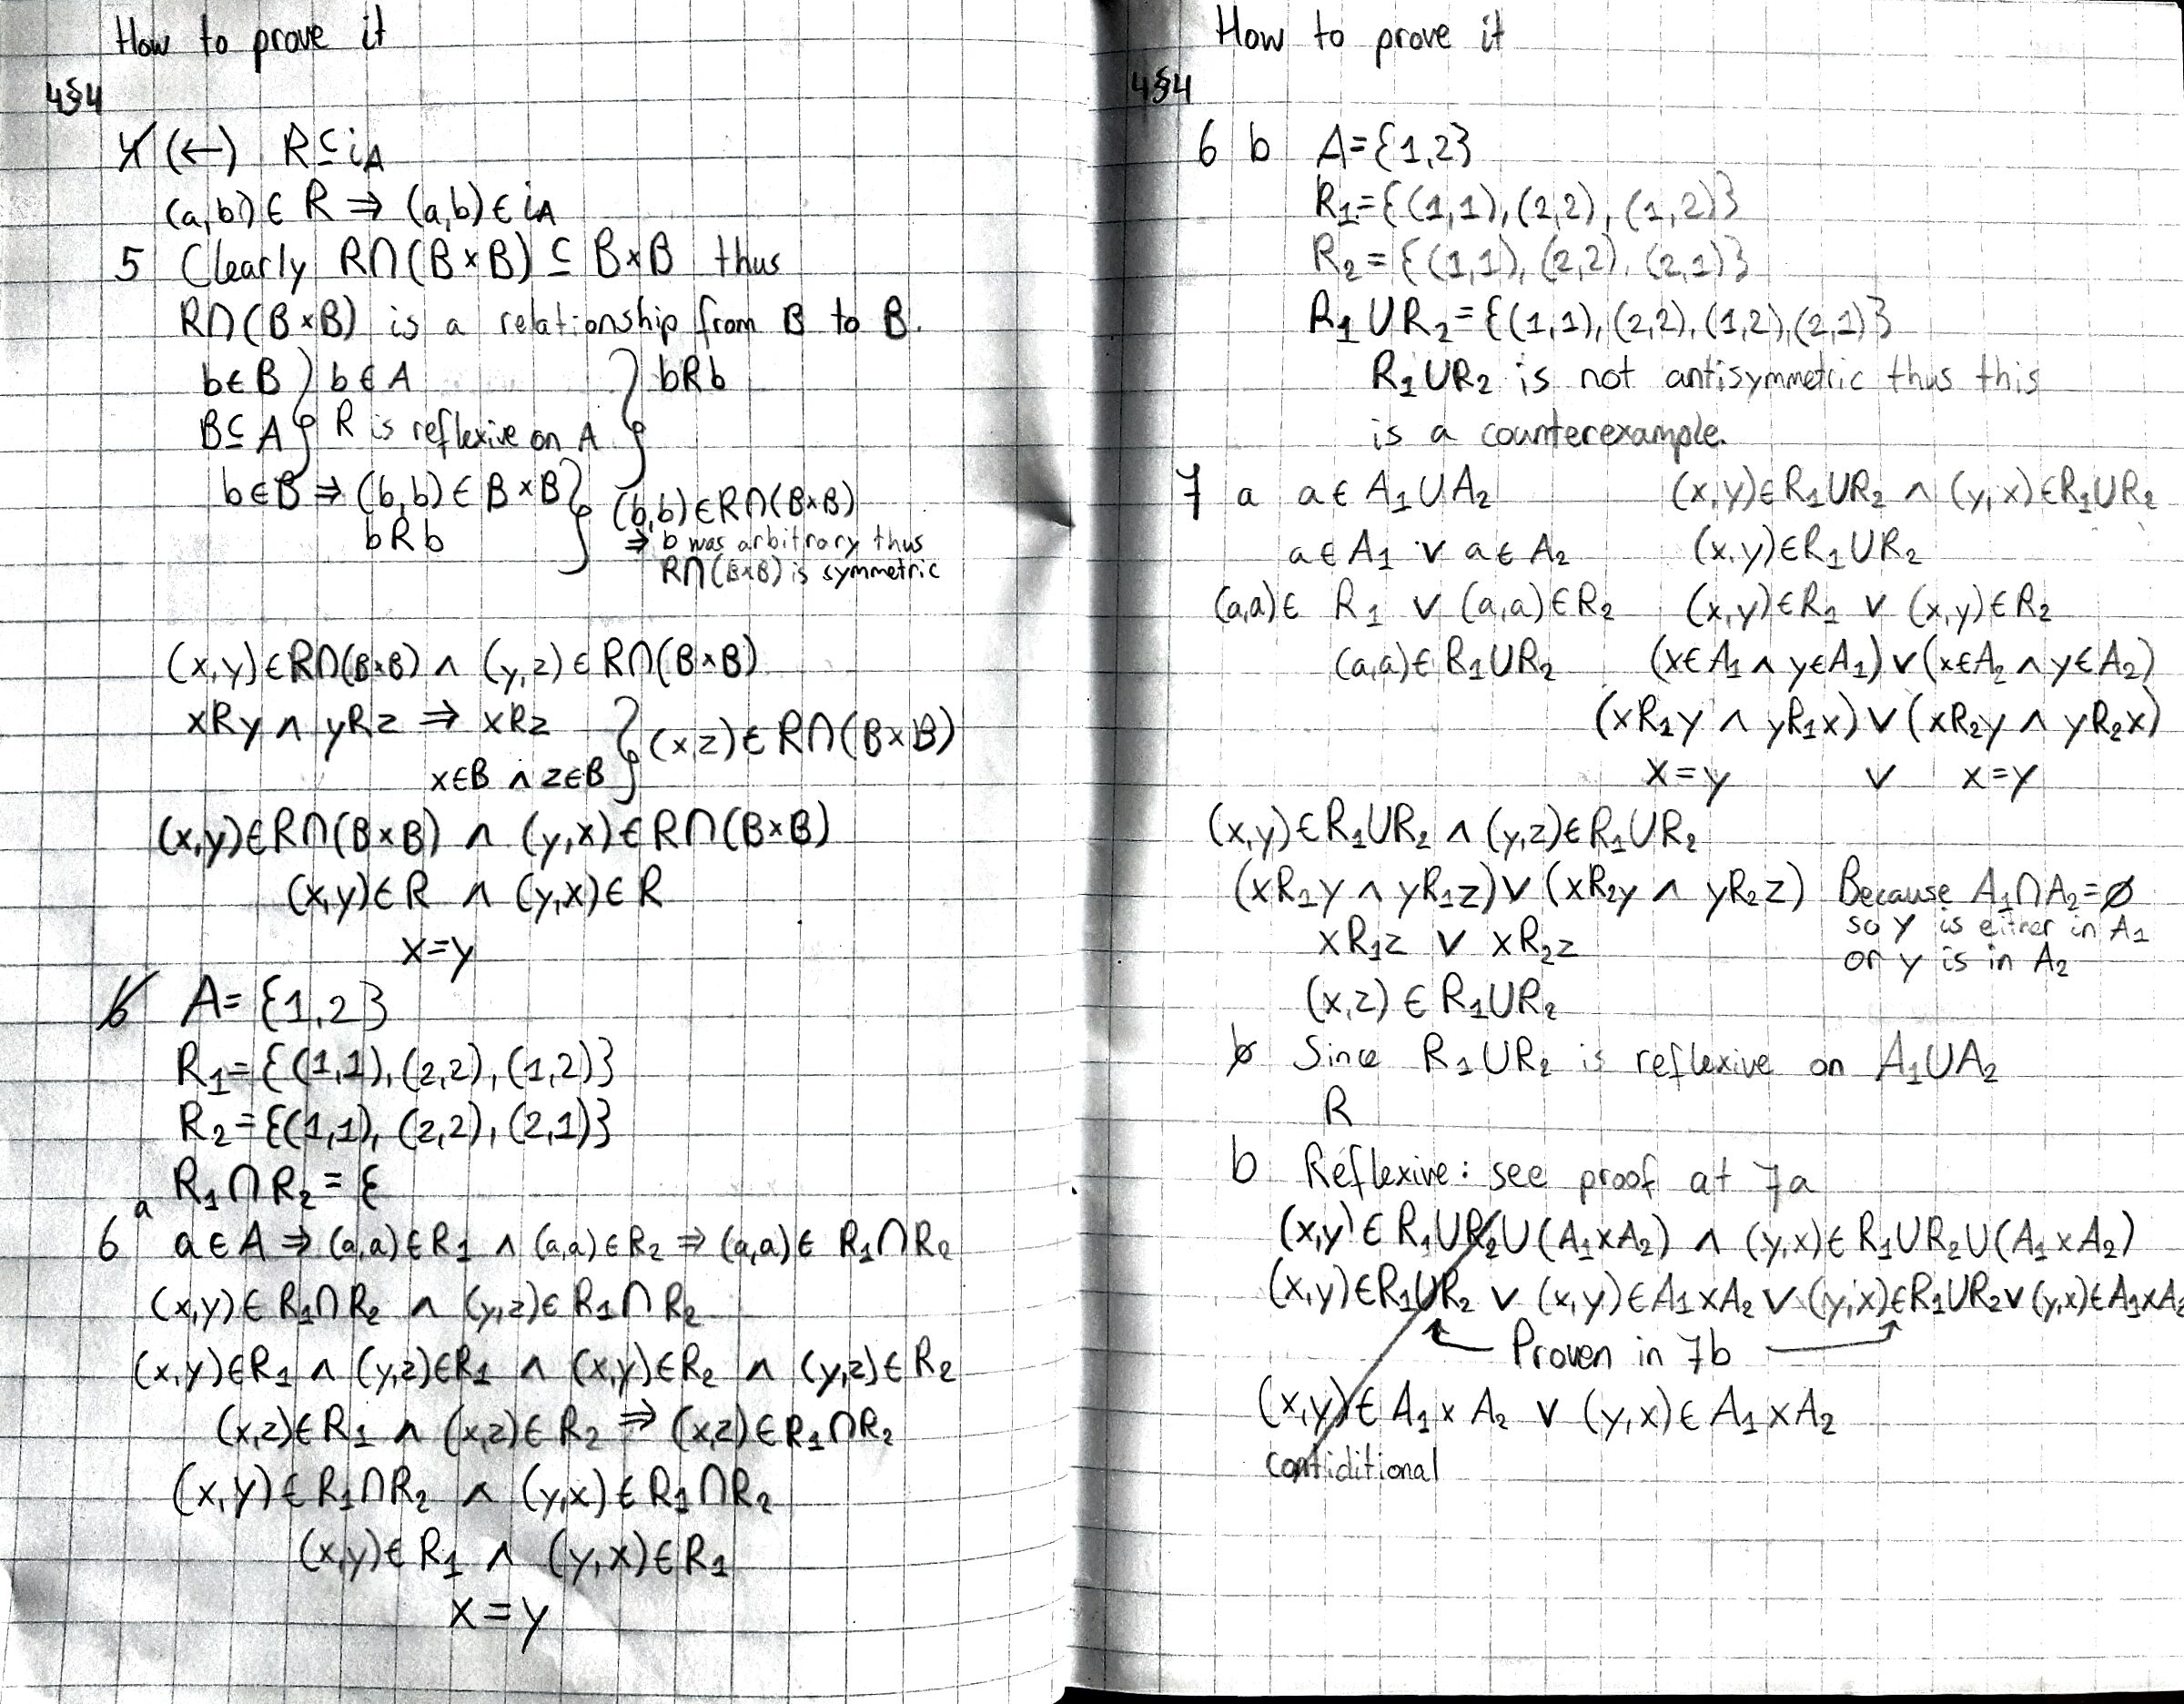 How to prove it
4§4
4 (←) R⊆iA
(a,b) ∈ R ⇒ (a,b) ∈ iA
5 Clearly R∩(B×B) ⊆ B×B thus
R∩(B×B) is a relationship from B to B.
b∈B } b∈A } bRb
B⊆A } R is reflexive on A
b∈B ⇒ (b,b) ∈ B×B } (b,b)∈R∩(B×B)
bRb ⇒ b was arbitrary thus
R∩(B×B) is symmetric
(x,y)∈R∩(B×B) ∧ (y,z)∈R∩(B×B)
xRy ∧ yRz ⇒ xRz } (x,z)∈R∩(B×B)
x∈B ∧ z∈B
(x,y)∈R∩(B×B) ∧ (y,x)∈R∩(B×B)
(x,y)∈R ∧ (y,x)∈R
x=y
6 A={1,2}
R₁={(1,1),(2,2),(1,2)}
R₂={(1,1),(2,2),(2,1)}
R₁∩R₂={
6 a a∈A ⇒ (a,a)∈R₁ ∧ (a,a)∈R₂ ⇒ (a,a)∈ R₁∩R₂
(x,y)∈R₁∩R₂ ∧ (y,z)∈R₁∩R₂
(x,y)∈R₁ ∧ (y,z)∈R₁ ∧ (x,y)∈R₂ ∧ (y,z)∈R₂
(x,z)∈R₁ ∧ (x,z)∈R₂ ⇒ (x,z)∈R₁∩R₂
(x,y)∈R₁∩R₂ ∧ (y,x)∈R₁∩R₂
(x,y)∈R₁ ∧ (y,x)∈R₁
x=y
How to prove it
4§4
6 b A={1,2}
R₁={(1,1),(2,2),(1,2)}
R₂={(1,1),(2,2),(2,1)}
R₁∪R₂={(1,1),(2,2),(1,2),(2,1)}
R₁∪R₂ is not antisymmetric thus this
is a counterexample.
7 a a∈A₁∪A₂
a∈A₁ ∨ a∈A₂
(a,a)∈ R₁ ∨ (a,a)∈R₂
(a,a)∈R₁∪R₂
(x,y)∈R₁∪R₂ ∧ (y,x)∈R₁∪R₂
(x,y)∈R₁∪R₂
(x,y)∈R₁ ∨ (x,y)∈R₂
(x∈A₁ ∧ y∈A₁)∨(x∈A₂ ∧ y∈A₂)
(xR₁y ∧ yR₁x)∨(xR₂y ∧ yR₂x)
x=y ∨ x=y
(x,y)∈R₁∪R₂ ∧ (y,z)∈R₁∪R₂
(xR₁y ∧ yR₁z)∨(xR₂y ∧ yR₂z) Because A₁∩A₂=∅
so y is either in A₁
or y is in A₂
xR₁z ∨ xR₂z
(x,z) ∈ R₁∪R₂
b Since R₁∪R₂ is reflexive on A₁∪A₂
R
b Reflexive: see proof at 7a
(x,y)∈R₁∪R₂∪(A₁×A₂) ∧ (y,x)∈R₁∪R₂∪(A₁×A₂)
(x,y)∈R₁∪R₂ ∨ (x,y)∈A₁×A₂ ∨ (y,x)∈R₁∪R₂ ∨ (y,x)∈A₁×A₂
Proven in 7b
(x,y)∈A₁×A₂ ∨ (y,x)∈A₁×A₂